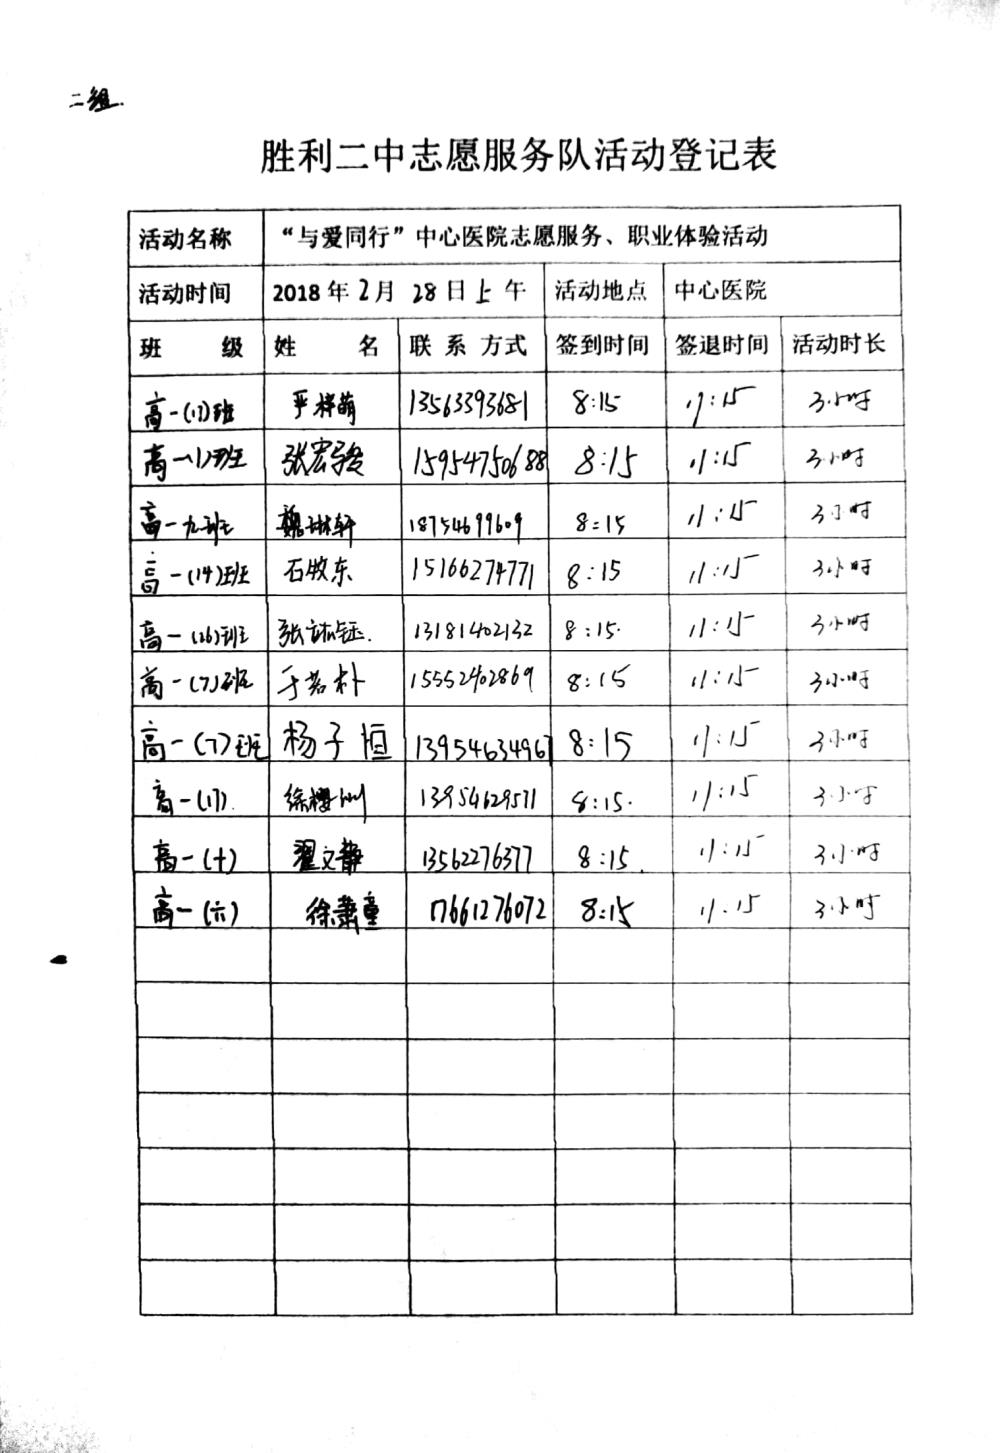 二组.
胜利二中志愿服务队活动登记表
活动名称 “与爱同行”中心医院志愿服务、职业体验活动
活动时间 2018年2月 28日上午 活动地点 中心医院
班 级 姓 名 联系方式 签到时间 签退时间 活动时长
高一(17)班 严梓萌 13563393681 8:15 11:15 3小时
高一(1)班 张宏骏 15954750688 8:15 11:15 3小时
高一九班 魏琳轩 18754699609 8:15 11:15 3小时
高一(14)班 石牧东 15166274771 8:15 11:15 3小时
高一(26)班 张 钰. 13181402132 8:15. 11:15 3小时
高一(7)班 于若朴 15552402869 8:15 11:15 3小时
高一(7)班 杨子恒 13954634967 8:15 11:15 3小时
高一(17). 徐樱 13954629571 8:15. 11:15 3小时
高一(十) 翟文静 13562276377 8:15. 11:15 3小时
高一(六) 徐萧童 17661276072 8:15 11.15 3小时